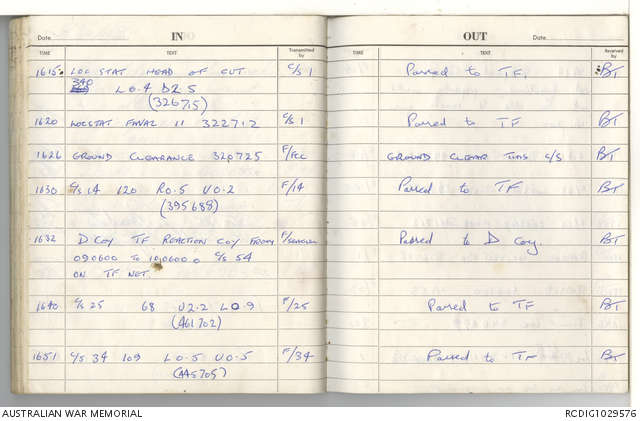 Date IN
TIME TEXT Transmitted by
OUT Date
TIME TEXT Received by
1615 LOC STAT HEAD OF CUT C/S 1 Passed to TF. BT
340 L0.4 D2.5
(326715)
1620 LOCSTAT FINAL 11 322712 C/S 1 Passed to TF BT
1626 GROUND CLEARANCE 320725 F/FCC GROUND CLEAR THIS C/S BT
1630 C/S 14 120 R0.5 U0.2 F/14 Passed to TF BT
(395688)
1632 D COY TF REACTION COY FROM Passed to D Coy. BT
090600 TO 100600 C/S 54
ON TF NET.
1640 C/S 25 68 U2.2 L0.9 F/25 Passed to TF BT
(461702)
1651 C/S 34 109 L0.5 U0.5 F/34 Passed to TF BT
(445705)
AUSTRALIAN WAR MEMORIAL RCDIG1029576